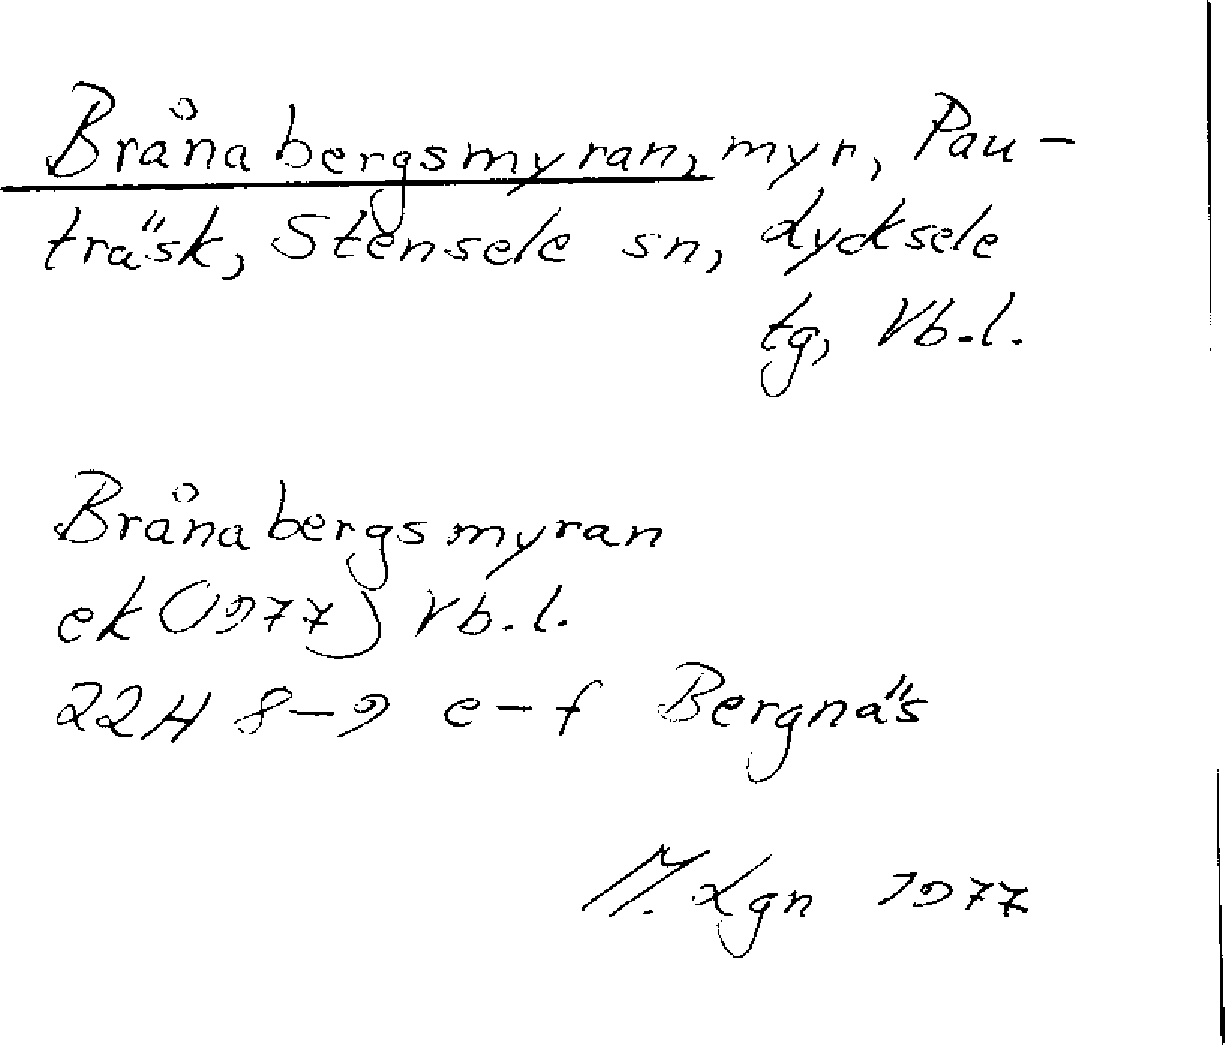 Brånabergsmyran, myr, Pau-
träsk, Stensele sn, Lycksele
tg, Vb.l.
Brånabergsmyran
ek (1977) Vb.l.
22H 8-9 e-f Bergnäs
M. Lgn 1977